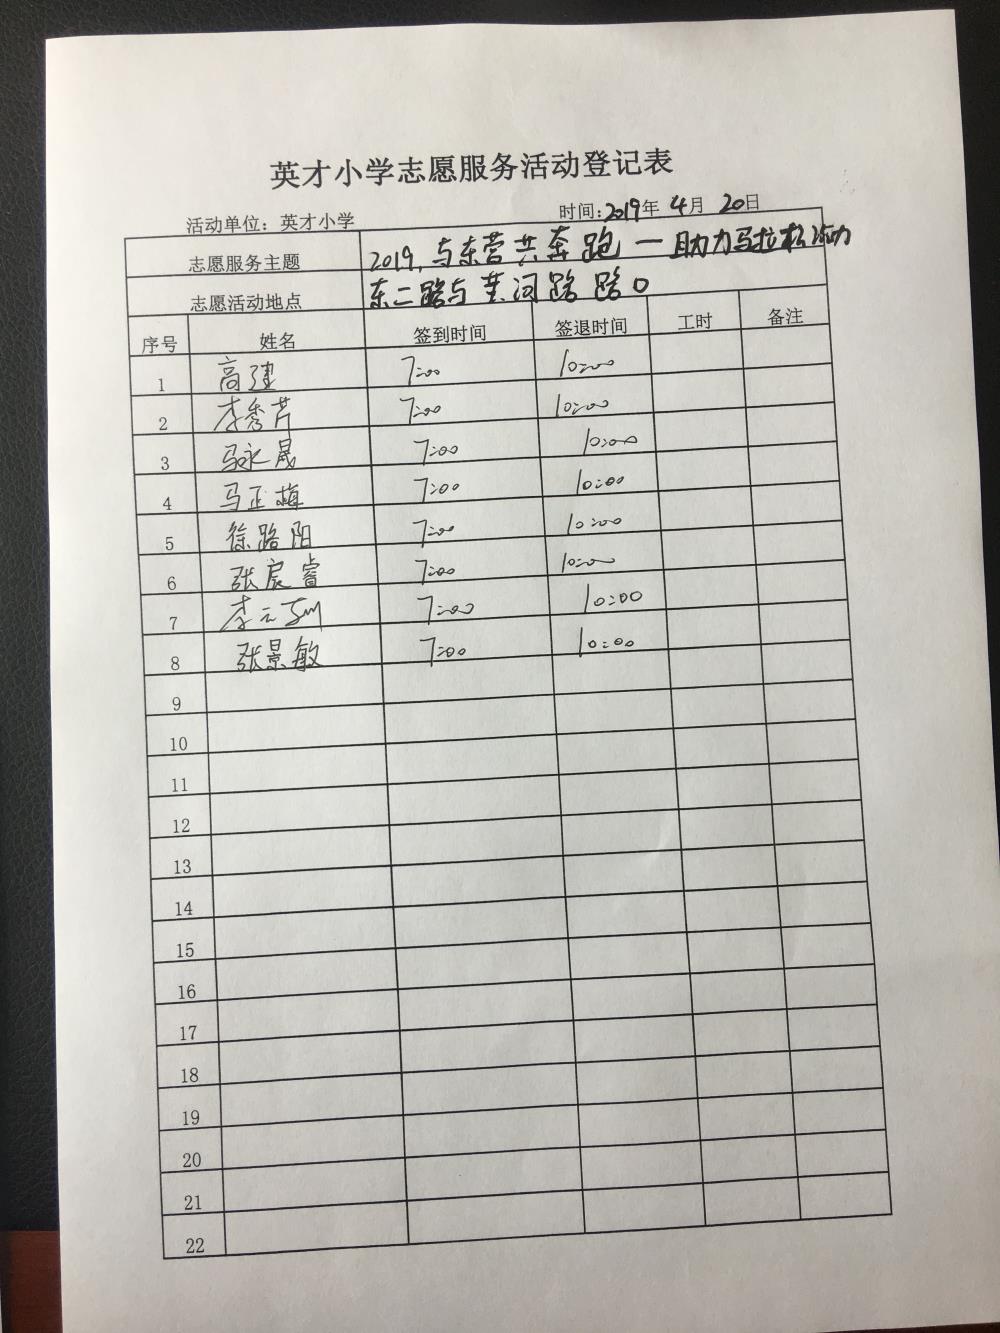 英才小学志愿服务活动登记表
活动单位：英才小学 时间：2019年 4月 20日
志愿服务主题 2019，与东营共奔跑一助力马拉松活动
志愿活动地点 东二路与黄河路路口
序号 姓名 签到时间 签退时间 工时 备注
1 高建 7:00 10:00
2 李秀芹 7:00 10:00
3 马永晟 7:00 10:00
4 马正梅 7:00 10:00
5 徐路阳 7:00 10:00
6 张宸睿 7:00 10:00
7 李元 7:00 10:00
8 张景敏 7:00 10:00
9
10
11
12
13
14
15
16
17
18
19
20
21
22